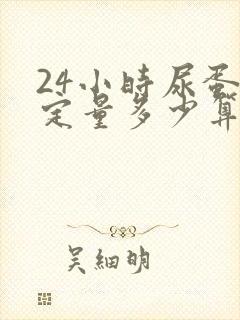 24小時尿蛋
定量多少算
吴細明